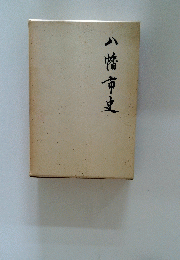 八幡市史